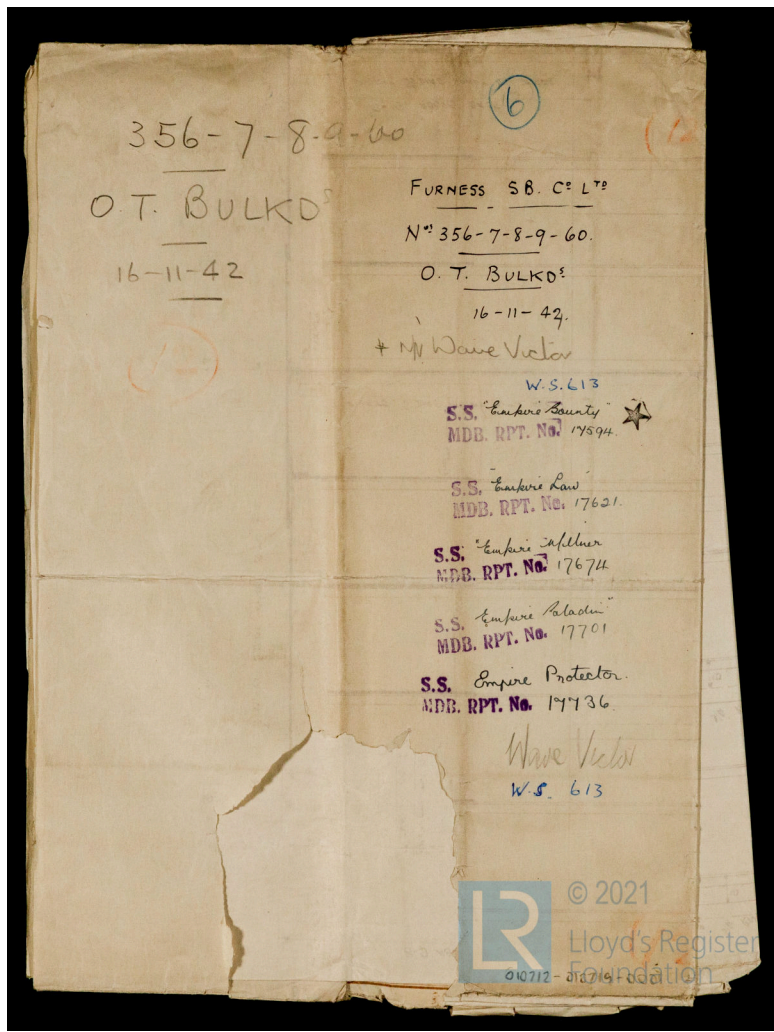 356-7-8-9-60
O.T. BULKDS
16-11-42
6
12
FURNESS SB. Co LTD
Nos 356-7-8-9-60.
O.T. BULKDS.
16-11-42.
* N/V Wave Victor
W.S.613
S.S. "Empire Bounty"
MDB. RPT. No. 17594.
S.S. "Empire Law"
MDB. RPT. No. 17621.
S.S. "Empire Milner
MDB. RPT. No. 17674
S.S. Empire Paladin"
MDB. RPT. No. 17701
S.S. Empire Protector.
MDB. RPT. No. 17736.
Wave Victor
W.S. 613
LR
© 2021
Lloyd's Register
Foundation